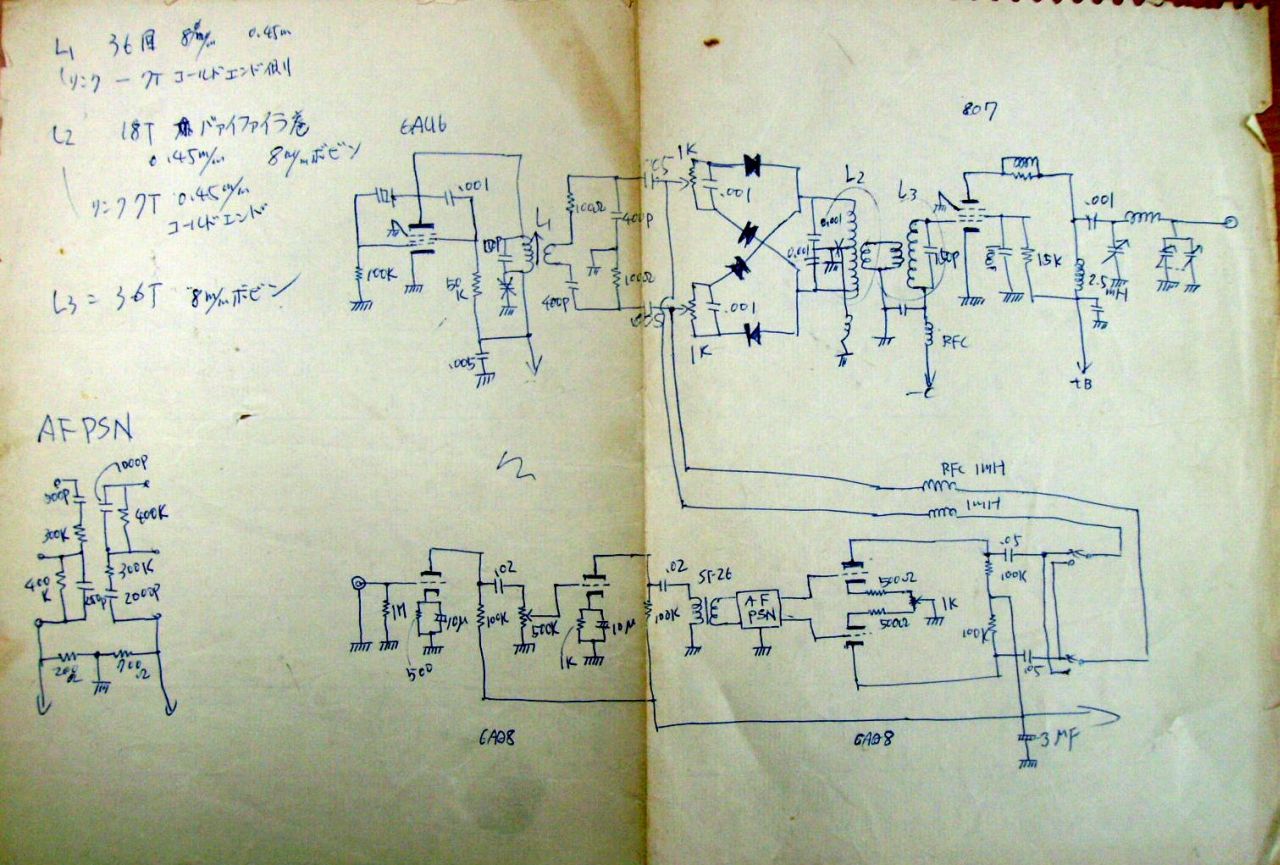 L1 36回 8φm/m 0.45m
リンク 一 クT コールドエンド側
L2 18T バァイファイラ巻
0.45m/m 8m/mボビン
リンク クT 0.45m/m
コールドエンド
L3 = 36T 8m/mボビン
6AU6
.001
100K
50K
.005
L1
400P
100Ω
400P
100Ω
1K
.001
.001
1K
L2
0.001
0.001
L3
150P
RFC
-C
807
15K
.001
2.5mH
+B
AF PSN
1000P
500P
300K
400K
400K
250P
300K
2000P
200Ω
RFC 1mH
1mH
1M
500
10μ
100K
.02
500K
1K
10μ
100K
.02
ST-26
AF PSN
500Ω
500Ω
1K
.05
100K
100K
.05
3μF
6AQ8
6AQ8